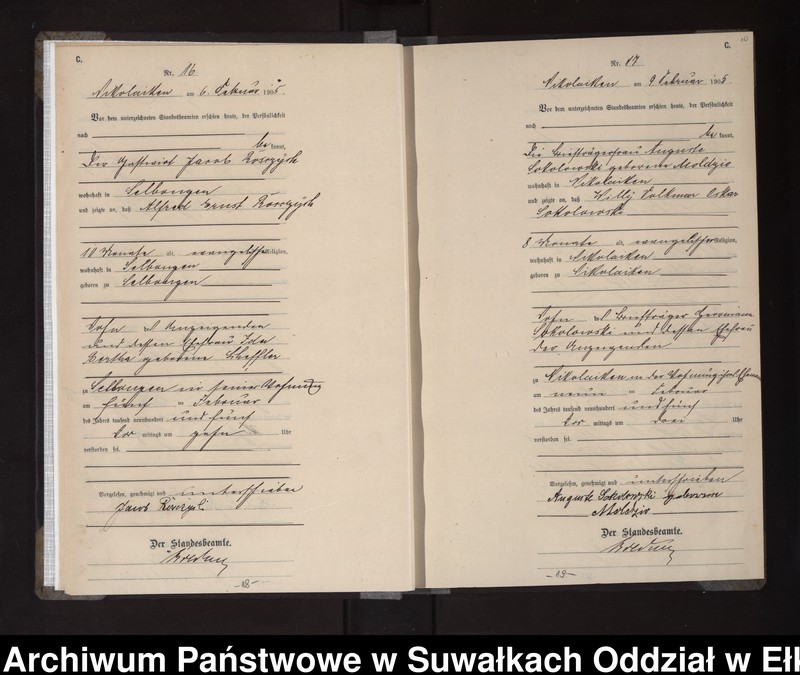 C.
Nr. 16
Nikolaiken am 6. Februar 1905.
Vor dem unterzeichneten Standesbeamten erschien heute, der Persönlichkeit
nach
be kannt,
Der Gastwirt Jacob
wohnhaft in Selbongen
und zeigte an, daß Alfred Ernst
10 Monate alt, evangelischer Religion,
wohnhaft in Selbongen
geboren zu Selbongen
Sohn des Anzeigenden
und dessen Ehefrau Ida
Bertha geborene Scheffler
zu Selbongen in seiner Wohnung
am fünf ten Februar
des Jahres tausend neunhundert und fünf
vor mittags um zehn Uhr
verstorben sei.
Vorgelesen, genehmigt und unterschrieben
Jacob
Der Standesbeamte.
-18-
C.
Nr. 17
Nikolaiken am 9. Februar 1905.
Vor dem unterzeichneten Standesbeamten erschien heute, der Persönlichkeit
nach
be kannt,
Die Briefträgerfrau Auguste
Sokolowski geborene Moldzio
wohnhaft in Nikolaiken
und zeigte an, daß Willy Volkmar Oskar
Sokolowski
8 Monate alt, evangelischer Religion,
wohnhaft in Nikolaiken
geboren zu Nikolaiken
Sohn des Briefträger Hermann
Sokolowski und dessen Ehefrau
der Anzeigenden
zu Nikolaiken in der Wohnung
am neun ten Februar
des Jahres tausend neunhundert und fünf
vor mittags um drei Uhr
verstorben sei.
Vorgelesen, genehmigt und unterschrieben
Auguste Sokolowski geborene
Moldzio
Der Standesbeamte.
-19-
Archiwum Państwowe w Suwałkach Oddział w Ełk